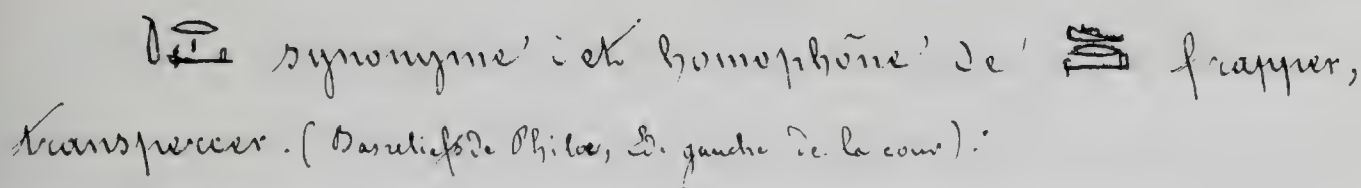 synonyme et homophône de frapper,
transpercer. (Basreliefs de Philæ, de gauche de la cour).